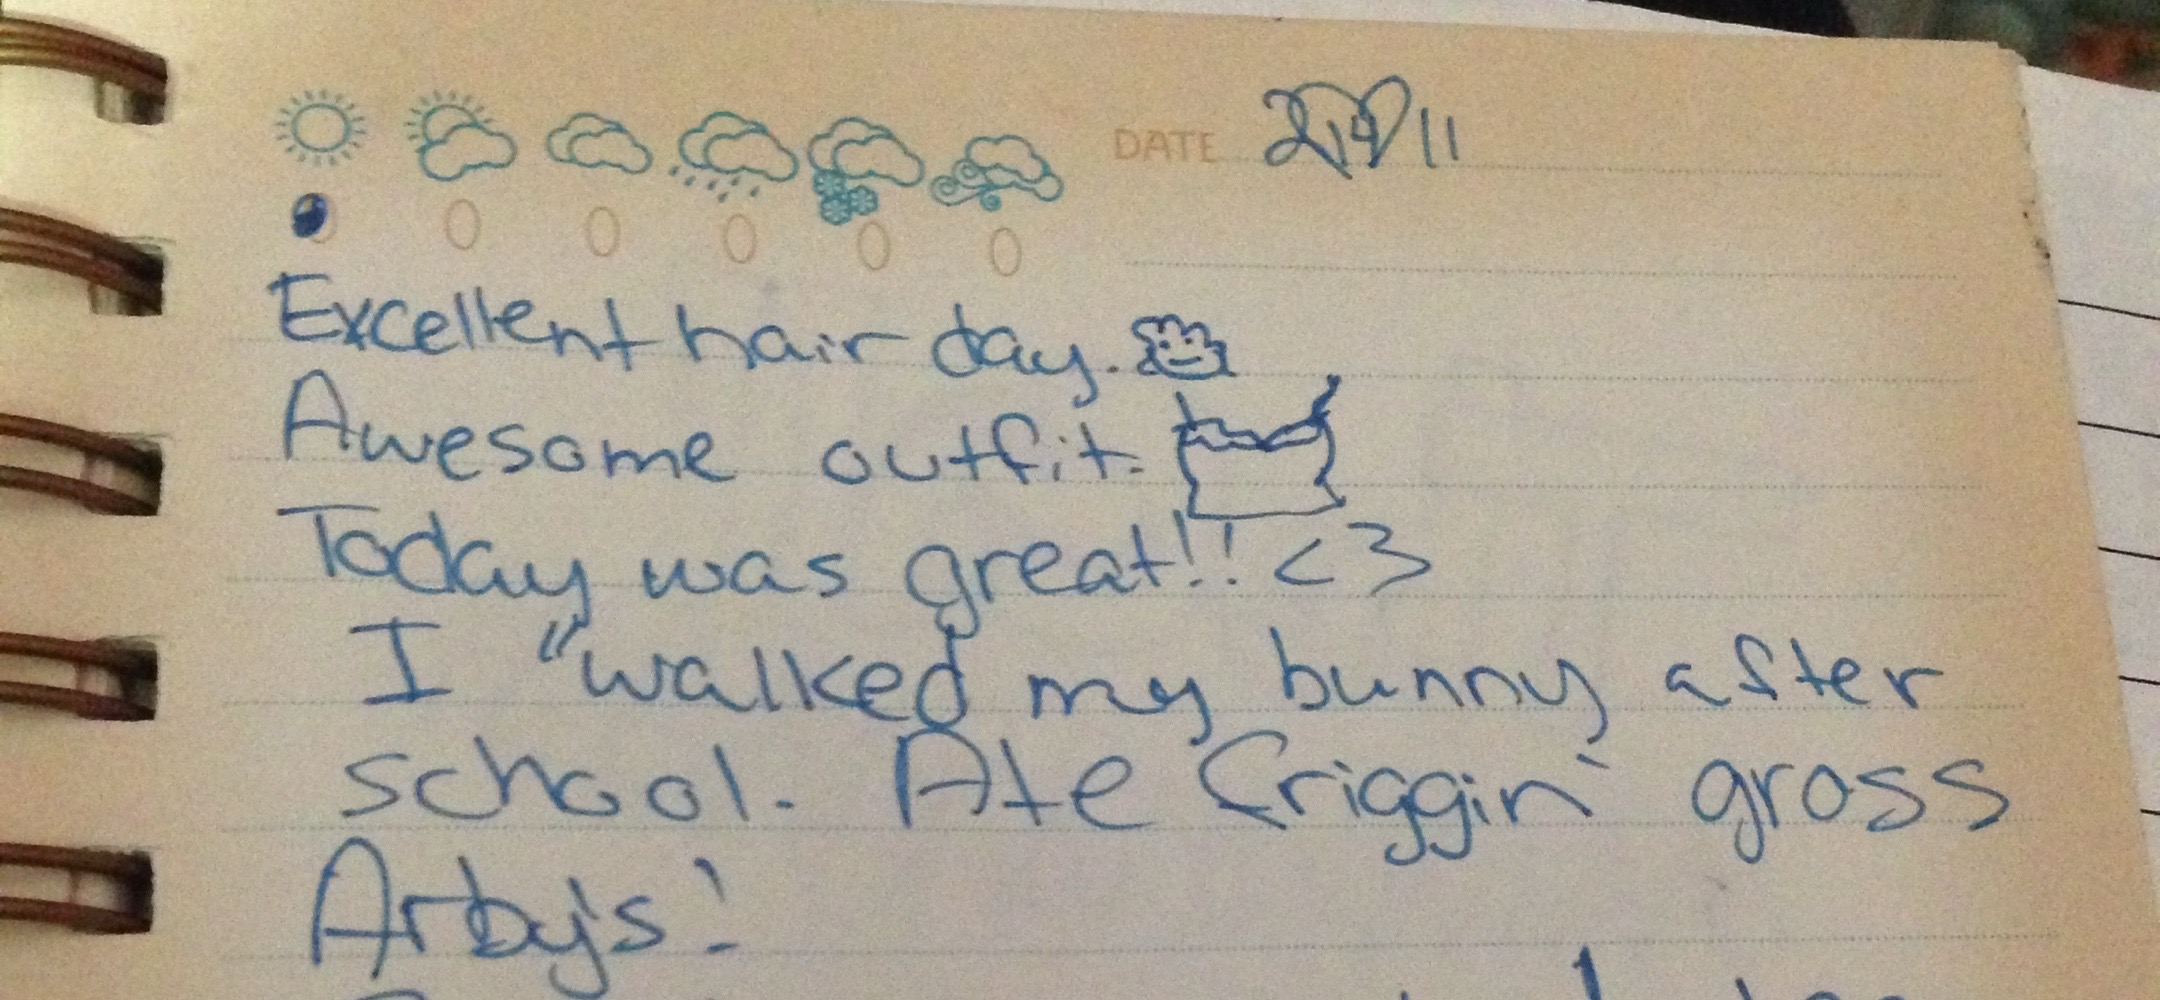 DATE 2/14/11
Excellent hair day.
Awesome outfit.
Today was great!! <3
I "walked my bunny after
school. Ate friggin' gross
Arby's!